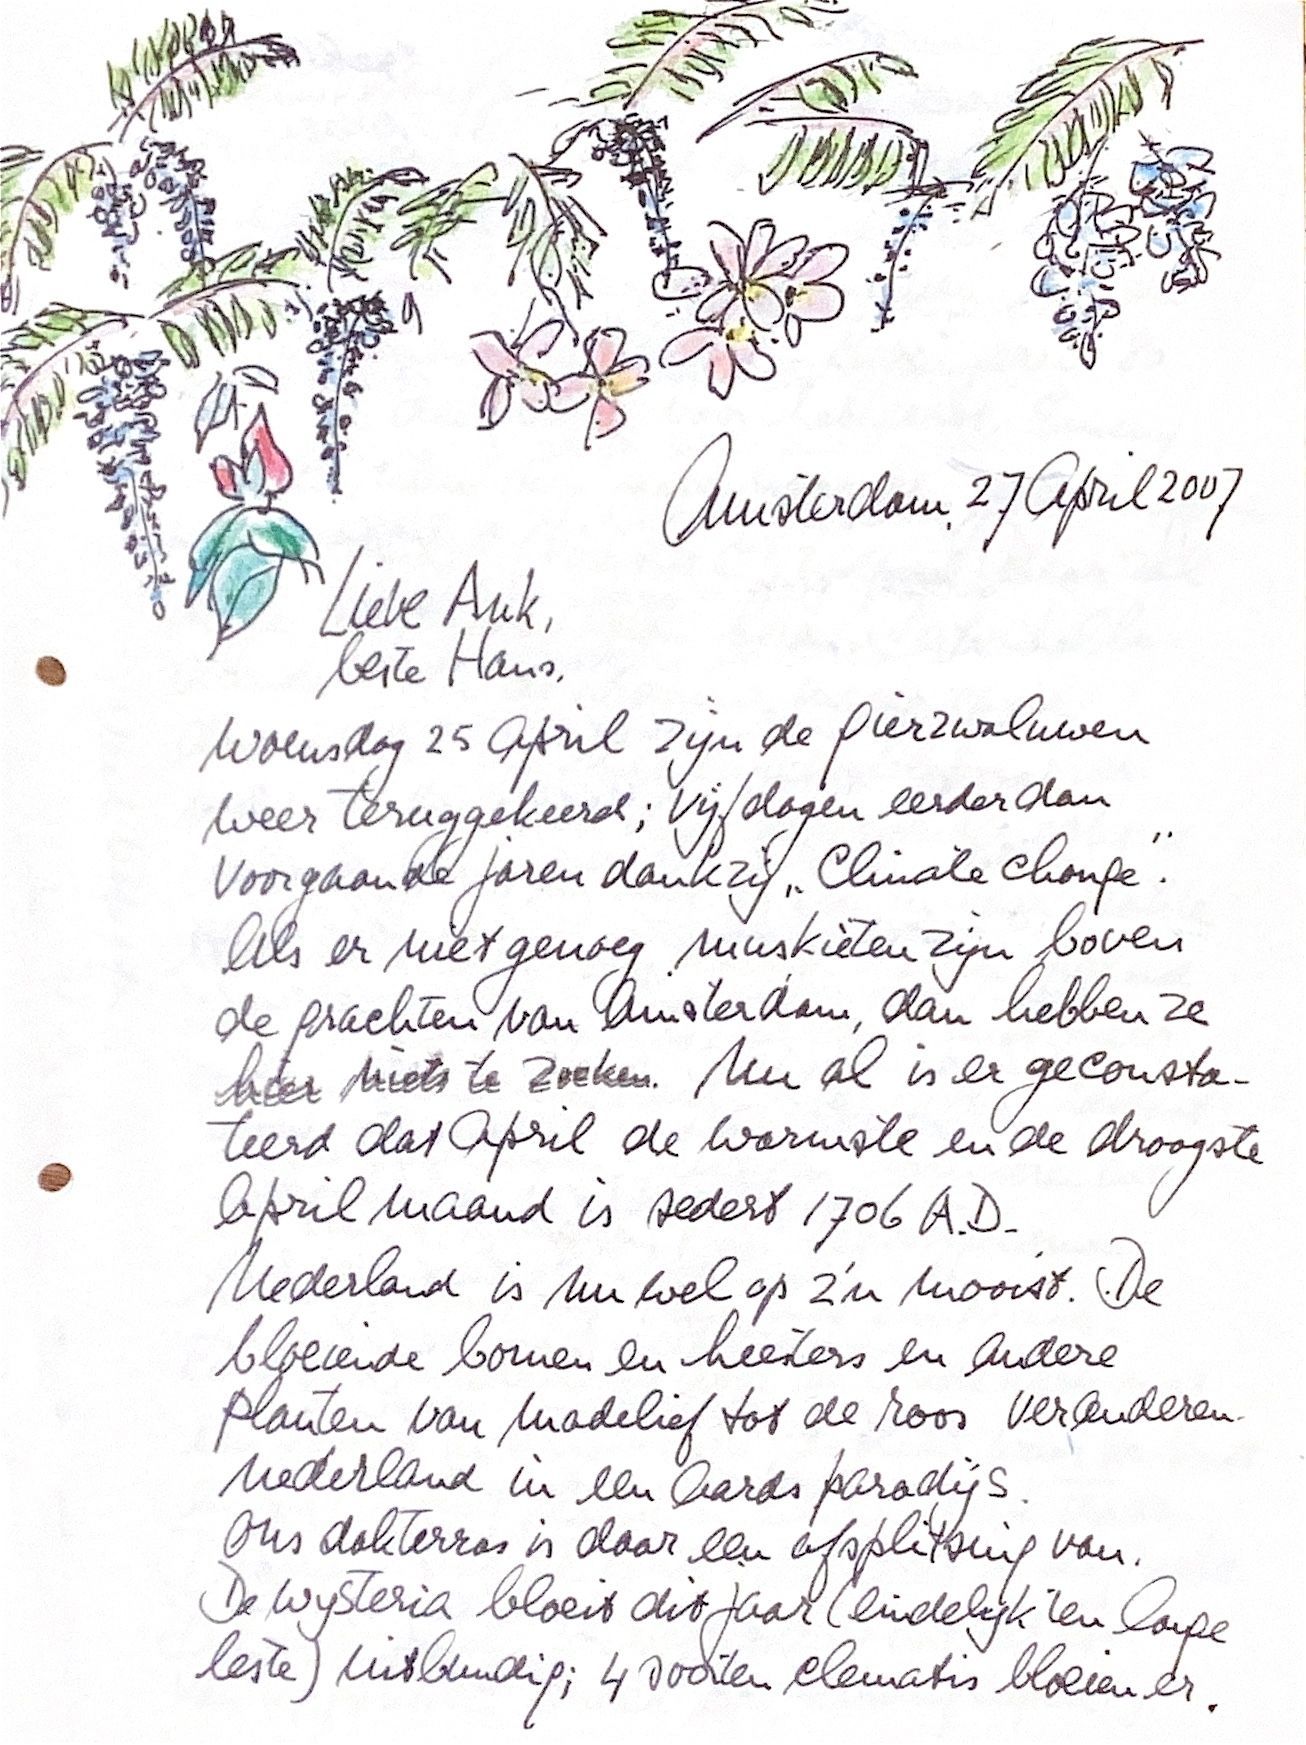 Amsterdam, 27 April 2007
Lieve Ank,
beste Hans,
Woensdag 25 April zijn de gierzwaluwen
weer teruggekeerd; vijf dagen eerder dan
voorgaande jaren dankzij „Climate change".
Als er niet genoeg muskieten zijn boven
de grachten van Amsterdam, dan hebben ze
hier niets te zoeken. Nu al is er geconsta-
teerd dat April de warmste en de droogste
April maand is sedert 1706 A.D.
Nederland is nu wel op z'n mooist. De
bloeiende bomen en heesters en andere
planten van madelief tot de roos veranderen
Nederland in een aards paradijs.
Ons dakterras is daar een afsplitsing van.
De wysteria bloeit dit jaar (eindelijk ten lange
leste) uitbundig; 4 soorten clematis bloeien er.